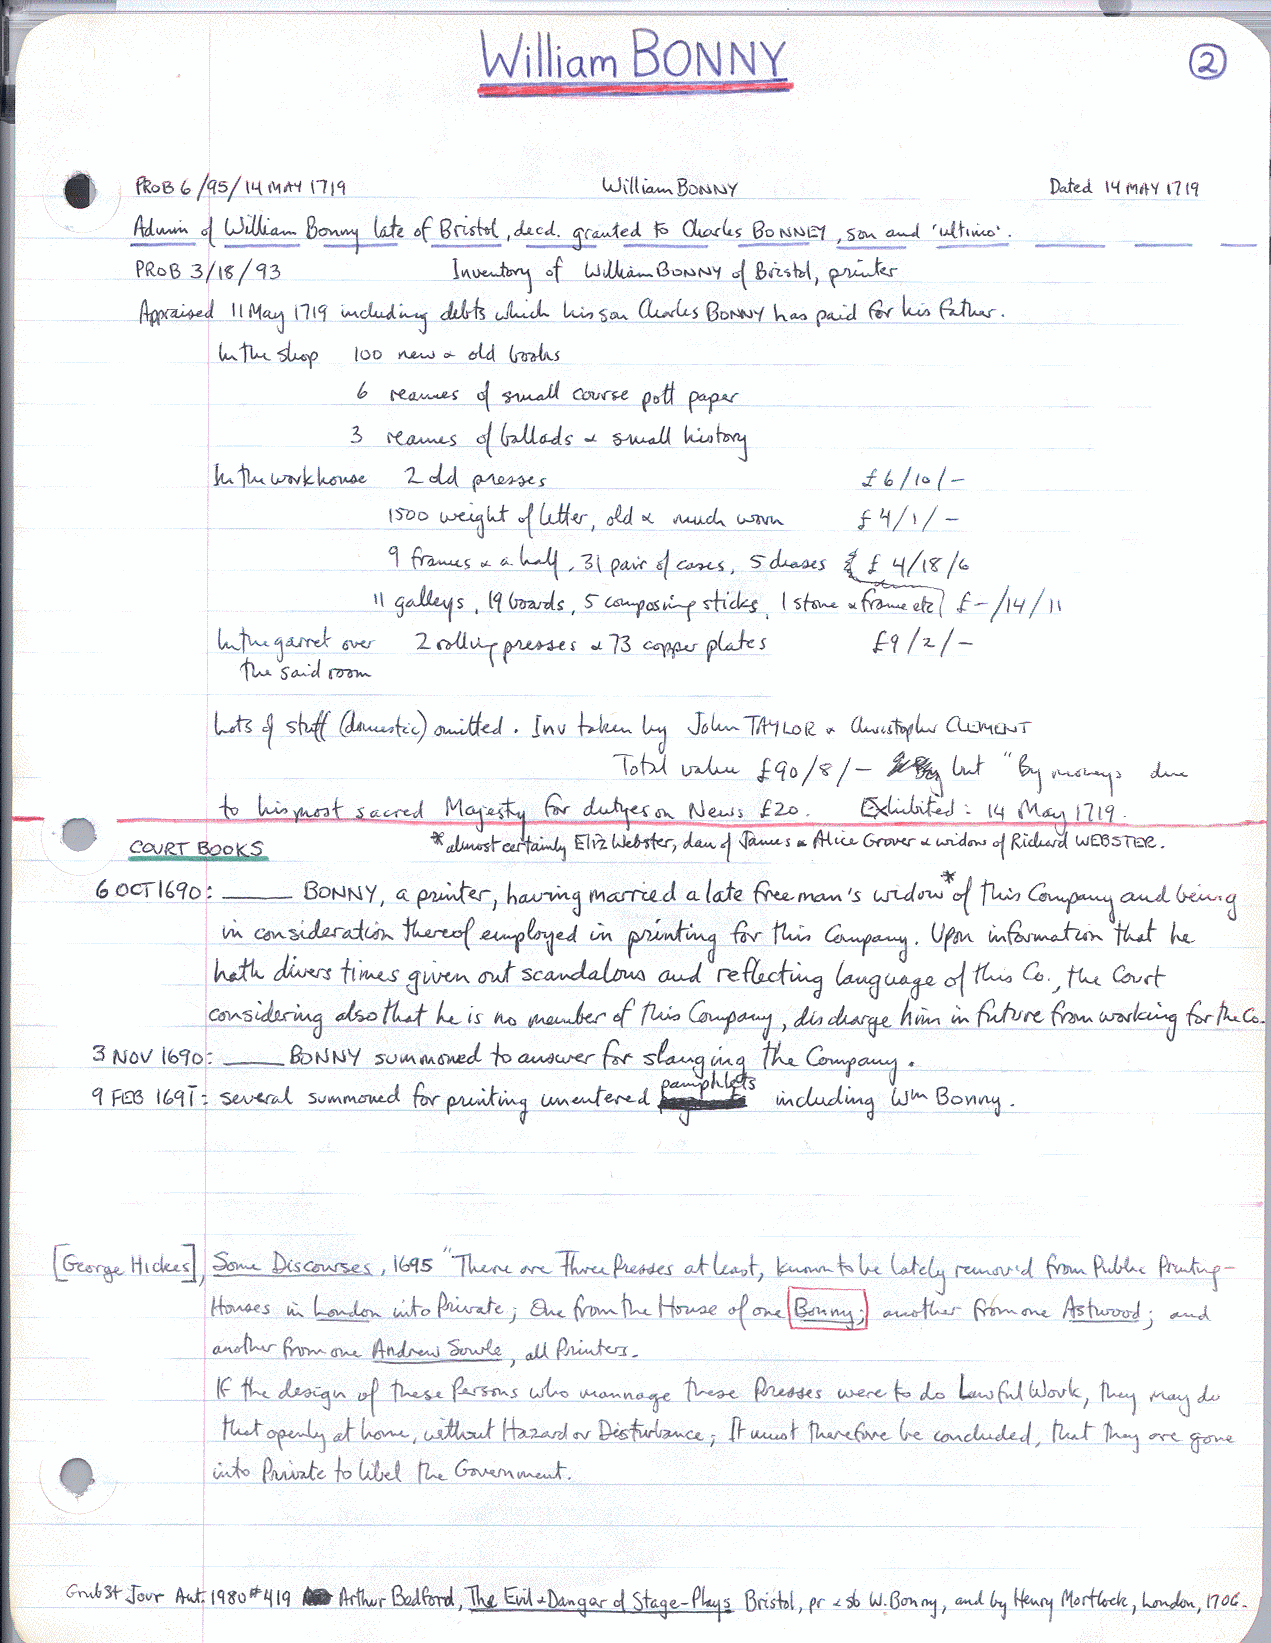 William BONNY
2
PROB 6/95/14 MAY 1719 William BONNY Dated 14 MAY 1719
Admin of William Bonny late of Bristol, decd. granted to Charles BONNEY, son and 'ultimo'.
PROB 3/18/93 Inventory of William BONNY of Bristol, printer
Appraised 11 May 1719 including debts which his son Charles BONNY has paid for his father.
In the shop 100 new & old books
6 reames of small course pott paper
3 reames of ballads & small history
In the workhouse 2 old presses £6/10/-
1500 weight of letter, old & much worn £4/1/-
9 frames & a half, 31 pair of cases, 5 chases £4/18/6
11 galleys, 19 boards, 5 composing sticks, 1 stone & frame etc £-/14/11
In the garret over 2 rolling presses & 73 copper plates £9/2/-
the said room
Lots of stuff (domestic) omitted. Inv taken by John TAYLOR & Christopher CLEMENT
Total value £90/8/- but "By moneys due
to his most sacred Majesty for dutyes on News £20. Exhibited: 14 May 1719.
COURT BOOKS * almost certainly Eliz Webster, dau of James & Alice Grover & widow of Richard WEBSTER.
6 OCT 1690: ____ BONNY, a printer, having married a late freeman's widow* of this Company and being
in consideration thereof employed in printing for this Company. Upon information that he
hath divers times given out scandalous and reflecting language of this Co., the Court
considering also that he is no member of this Company, discharge him in future from working for the Co.
3 NOV 1690: ____ BONNY summoned to answer for slanging the Company.
9 FEB 1691: several summoned for printing unentered pamphlets including Wm Bonny.
[George Hickes], Some Discourses, 1695 "There are Three Presses at least, known to be lately remov'd from Public Printing-
Houses in London into Private; One from the House of one Bonny; another from one Astwood; and
another from one Andrew Sowle, all Printers.
If the design of these Persons who mannage these Presses were to do Lawful Work, they may do
that openly at home, without Hazard or Disturbance; It must therefore be concluded, that they are gone
into Private to libel the Government.
Grub St Jour Aut. 1980 #419 Arthur Bedford, The Evil & Danger of Stage-Plays Bristol, pr & sb W. Bonny, and by Henry Mortlock, London, 1706.